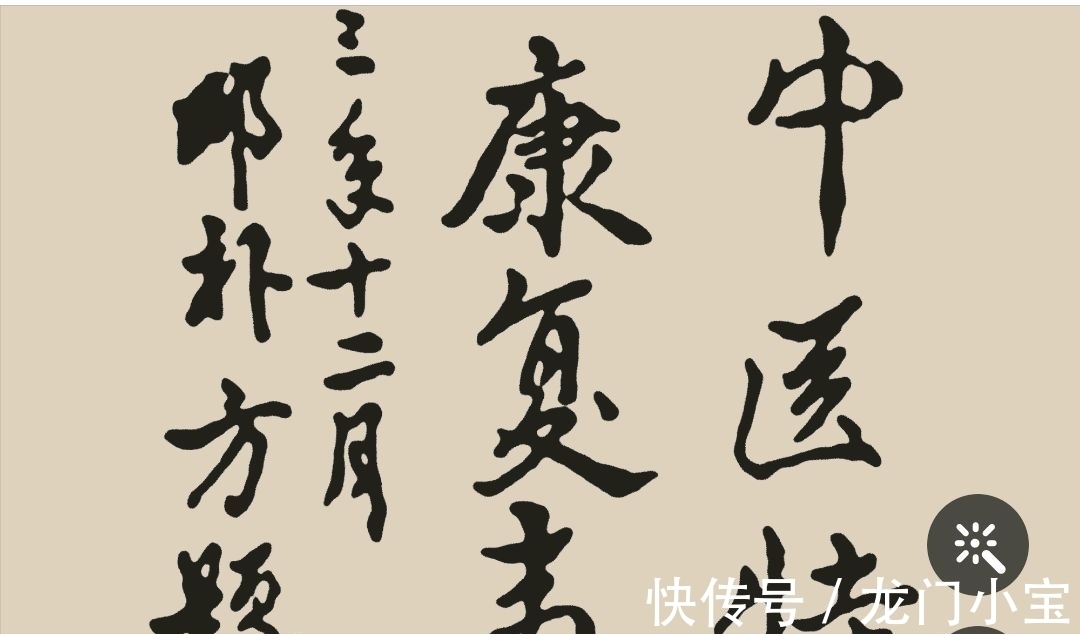 中医
康复
三年十二月
邓朴方题
快传号 / 龙门小宝